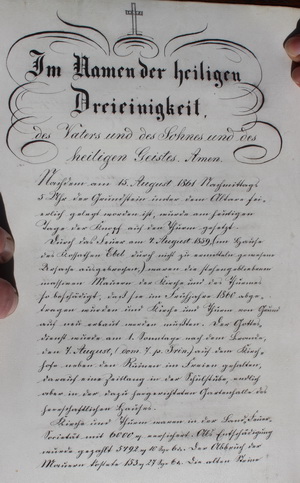 Im Namen der heiligen
Dreieinigkeit,
des Vaters und des Sohnes und des
heiligen Geistes. Amen.
Nachdem am 15. August 1861 Nachmittags
5 Uhr der Grundstein unter dem Altare fei-
erlich gelegt worden ist, wurde am heutigen
Tage der Knopf auf den Thurm gesetzt.
Durch das Feuer am 4. August 1859, (im Hause
des Ebel durch nicht zu ermittelnde
Ursache ausgebrochen,) waren die stehengebliebenen
Mauern der Kirche und des Thurmes
so beschädigt, daß sie im Frühjahr 1860 abge-
tragen wurden und Kirche und Thurm von Grund
auf neu erbaut werden mußten. Der Gottes-
dienst wurde am 1. Sonntage nach dem Brande,
den 7. August, (vom 7. p. Trin.) auf dem Kirch-
hofe neben den Ruinen im Freien gehalten,
darauf eine Zeitlang in der Schulstube, endlich
aber in der dazu hergerichteten Gartenhalle des
herrschaftlichen Hauses.
Kirche und Thurm waren in der Land-Feuer-
Societät mit 6000 versichert. Als Entschädigung
wurde gezahlt 5792 Der Abbruch der
Mauern kostete 153 Die alten Steine